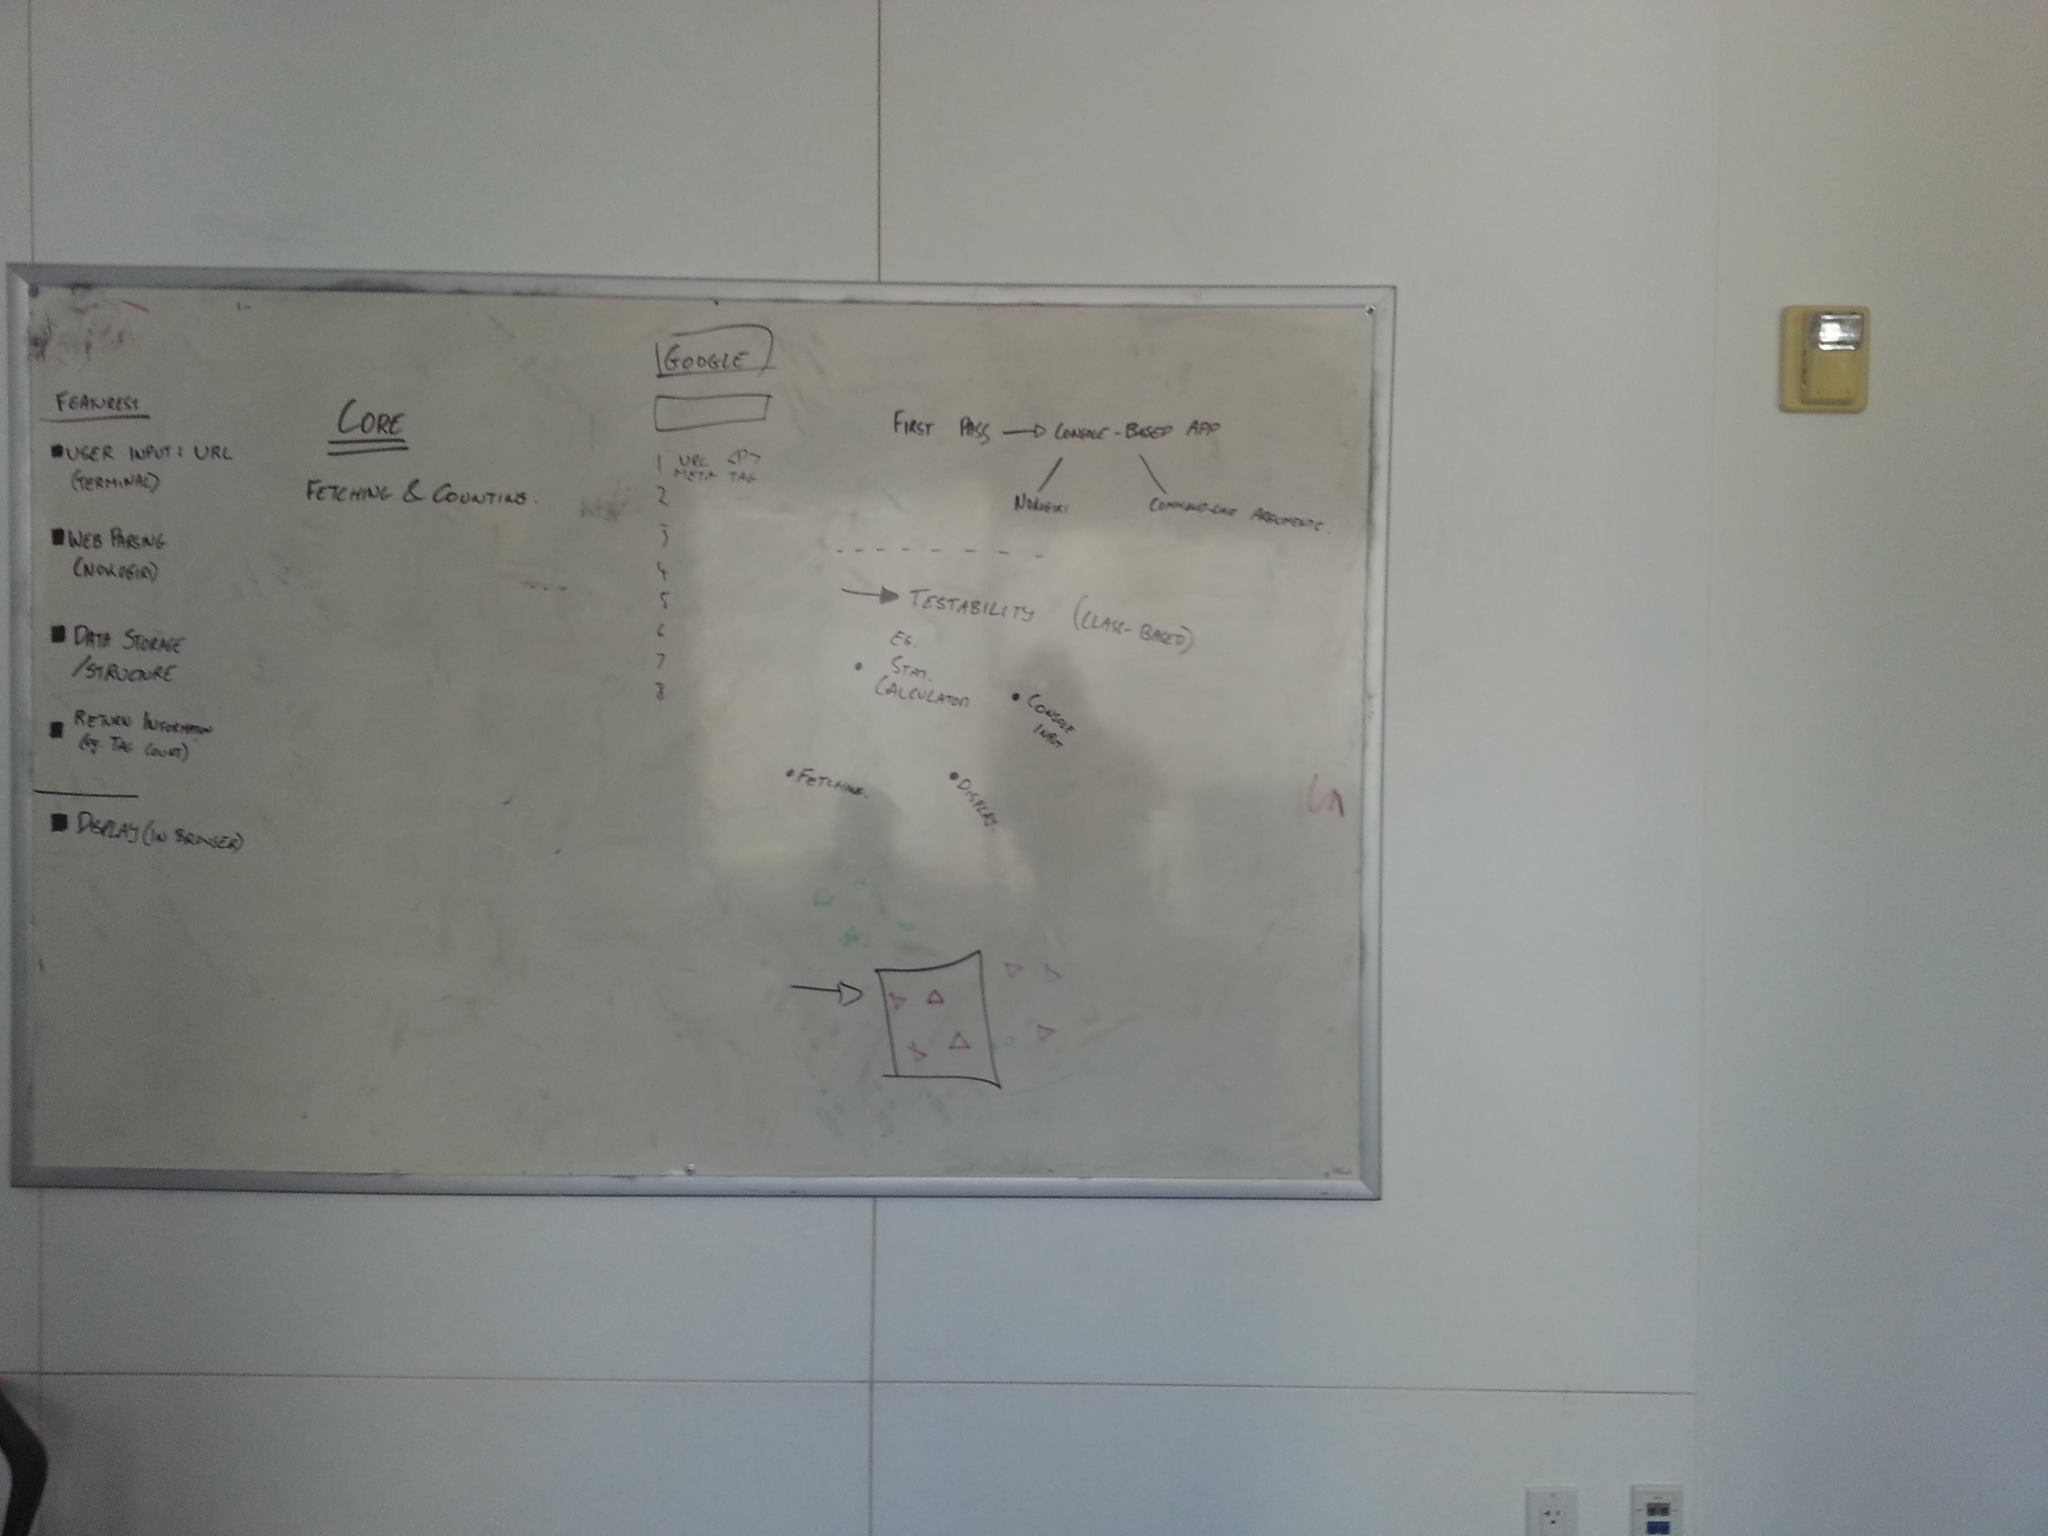 FEATURES:
USER INPUT: URL
(TERMINAL)
WEB PARSING
(NOKOGIRI)
DATA STORAGE
/STRUCTURE
RETURN INFORMATION
(eg. TAG COUNT)
DISPLAY (IN BROWSER)
CORE
FETCHING & COUNTING.
GOOGLE
1 URL <P>
META TAG
2
3
4
5
6
7
8
FIRST PASS → CONSOLE-BASED APP
NOKOGIRI
COMMAND-LINE ARGUMENTS.
→ TESTABILITY (CLASS-BASED)
EG.
• STAT.
CALCULATOR
• CONSOLE
INPUT
• FETCHING.
• DISPLAY.